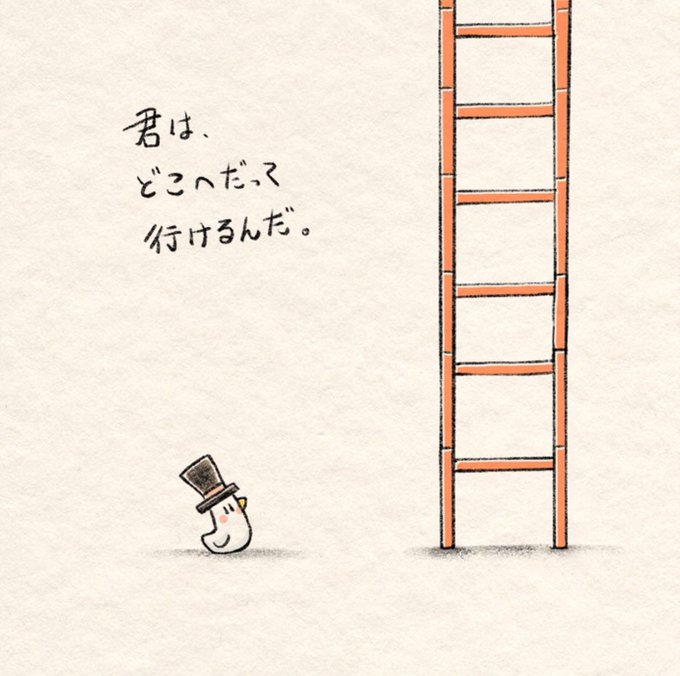 君は、
どこへだって
行けるんだ。